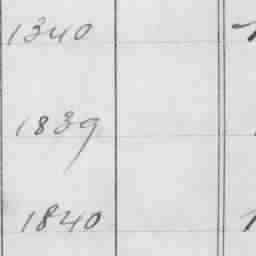 1340
1839
1840